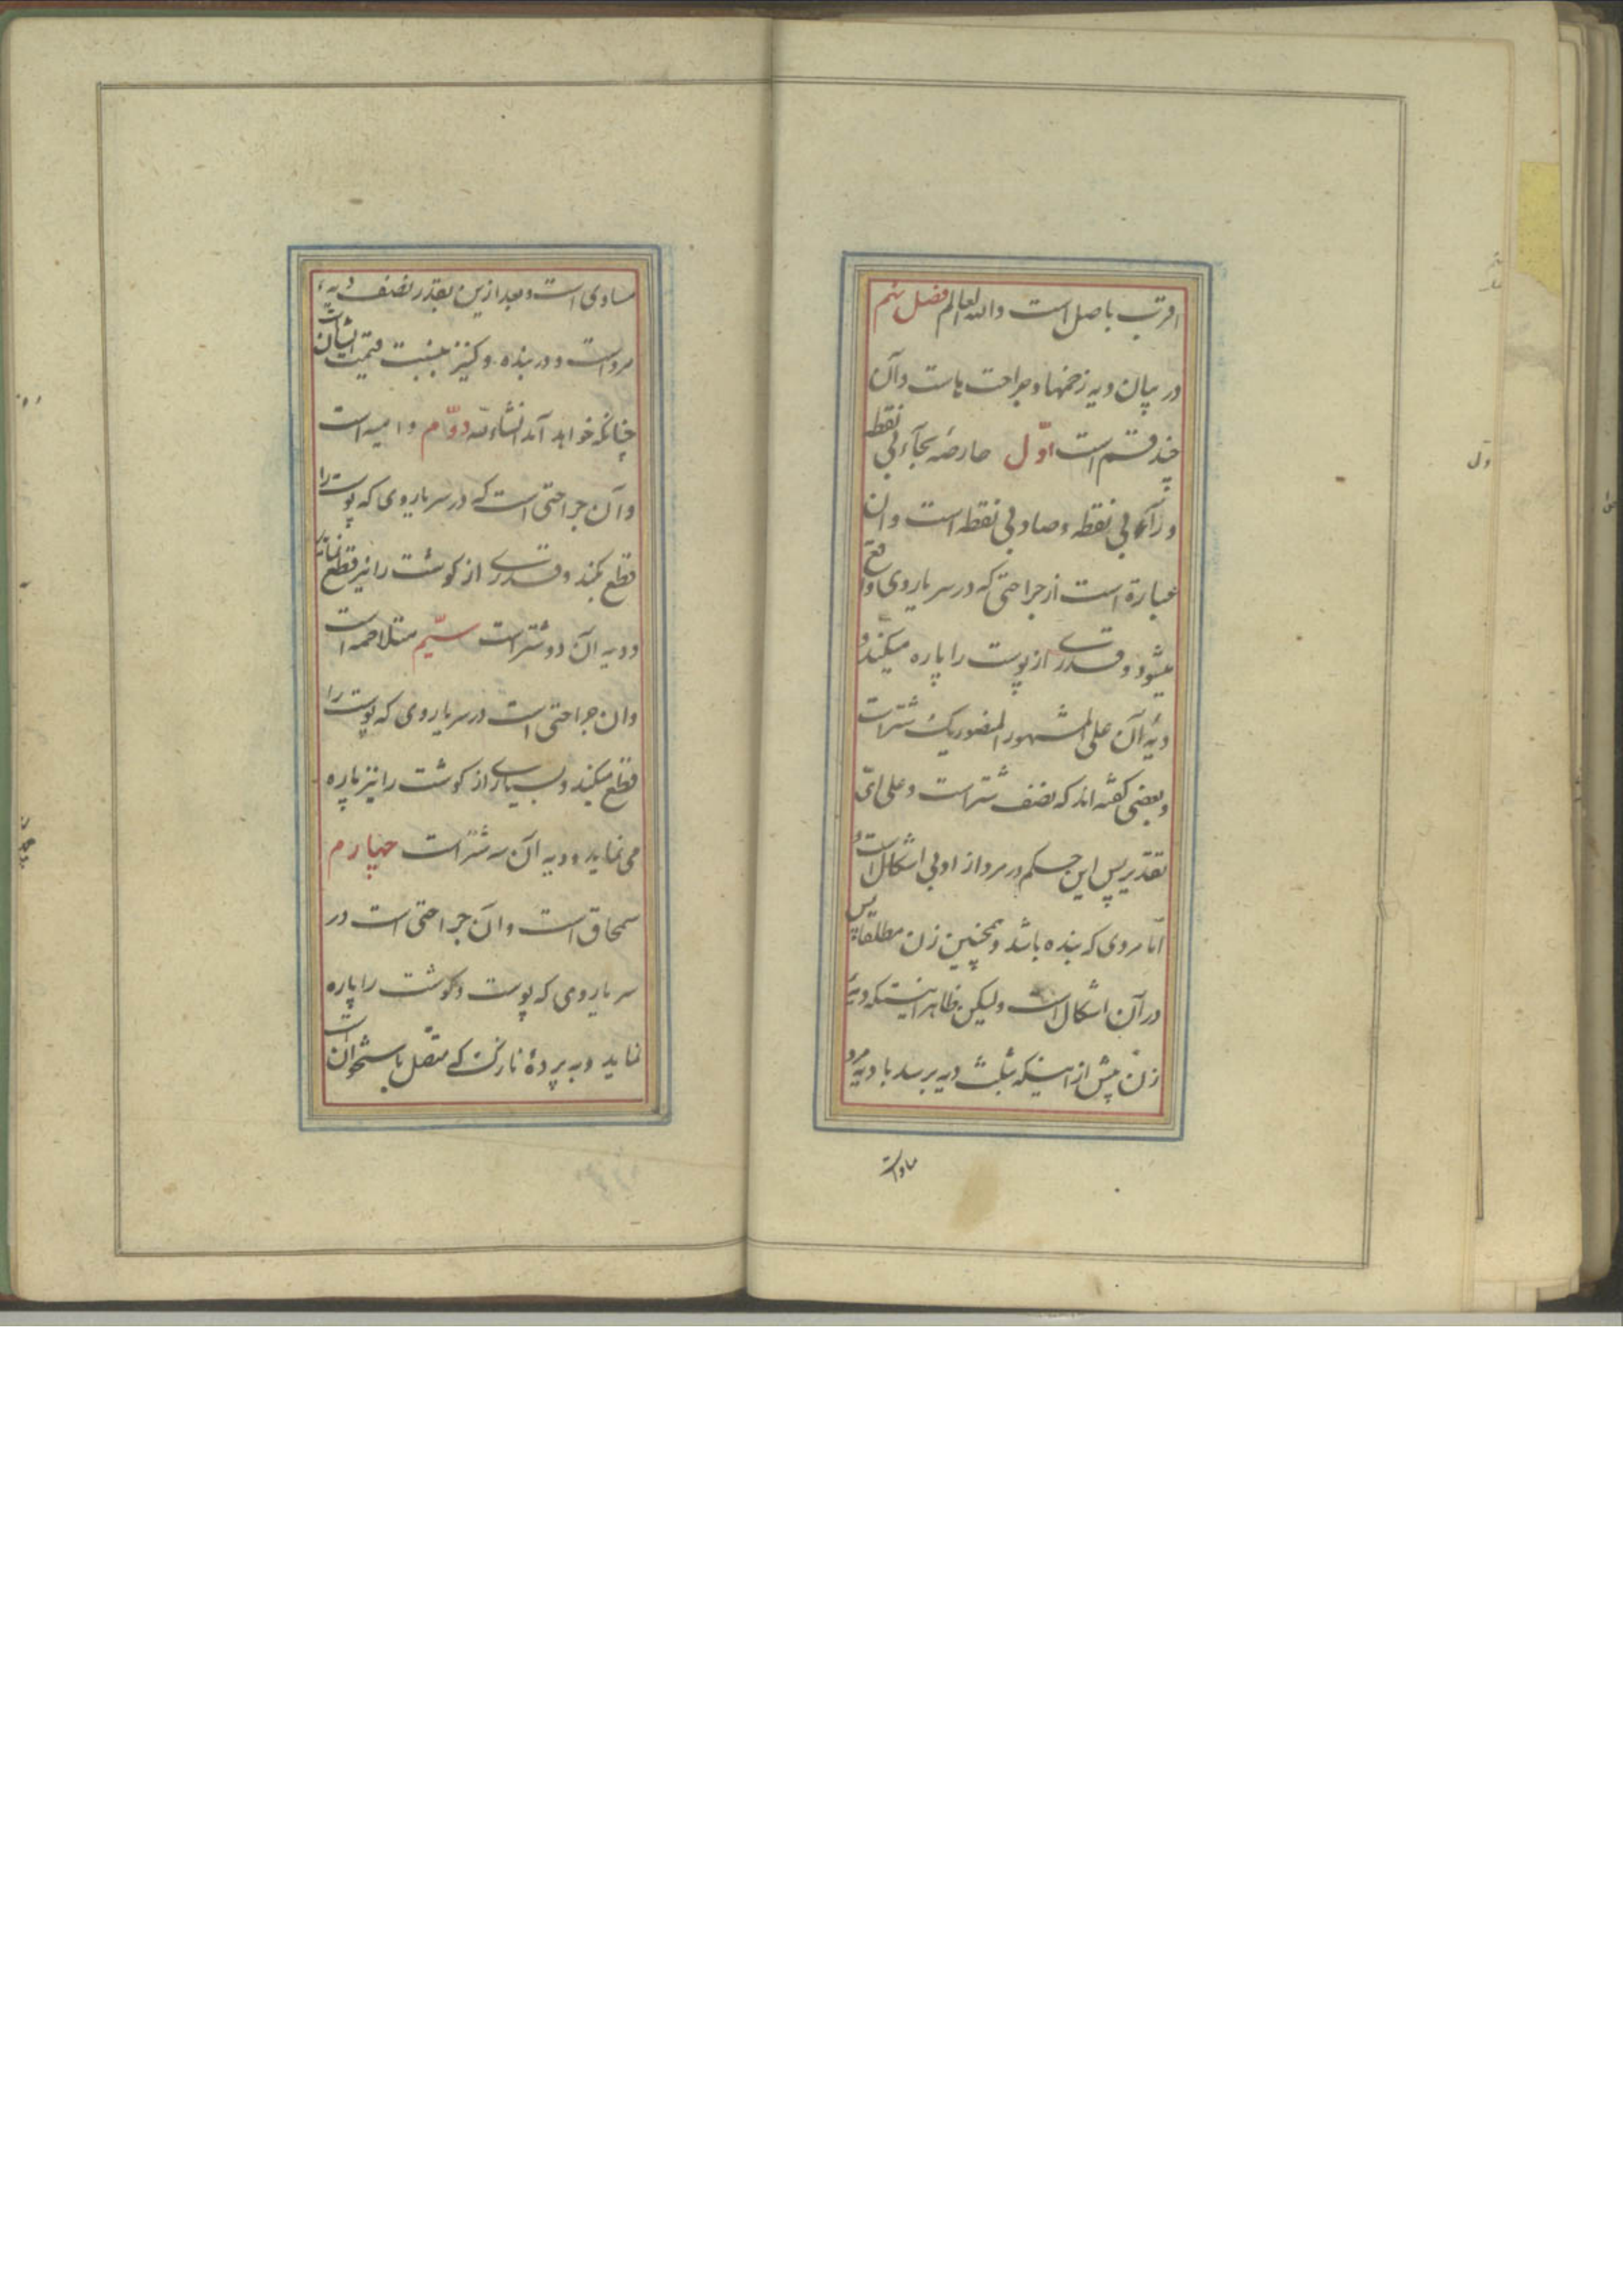 اقرب باصل است والله العالم فصل نهم
در بیان دیه زخمها و جراحت هاست و آن
چند قسم است اوّل حارصه بحآء بی نقطه
و رآء بی نقطه و صاد بی نقطه است و ان
عبارة است از جراحتی که در سر یا روی واقع
میشود و قدری از پوست را پاره میکند و
دیهٔ آن علی المشهور المنصور یک شتر است
و بعضی گفته اند که نصف شتر است و علی ایّ
تقدیر پس این حکم در مرد ازاد بی اشکال است و
امّا مردی که بنده باشد و همچنین زن مطلقا پس
در آن اشکال است ولیکن ظاهر اینستکه دیهٔ
زن پیش از اینکه بثلث دیه برسد با دیه مرد
مساوی است
مساوی است و بعد ازین بقدر نصف دیهٔ
مرد است و در بنده و کنیز بنسبت قیمت ایشان است
چنانکه خواهد آمد انشاءالله دوّم دامیه است
و آن جراحتی است که در سر یا روی که پوست را
قطع بکند و قدری از کوشت را نیز قطع نماید
و دیه آن دو شتر است سیّم متلاحمه است
و ان جراحتی است در سر یا روی که پوست را
قطع میکند و بسیاری از کوشت را نیز پاره
می نماید و دیه آن سه شتر است چهارم
سمحاق است و آن جراحتی است در
سر یا روی که پوست و کوشت را پاره
نماید و به پردهٔ نازکی که متّصل باستخوان است